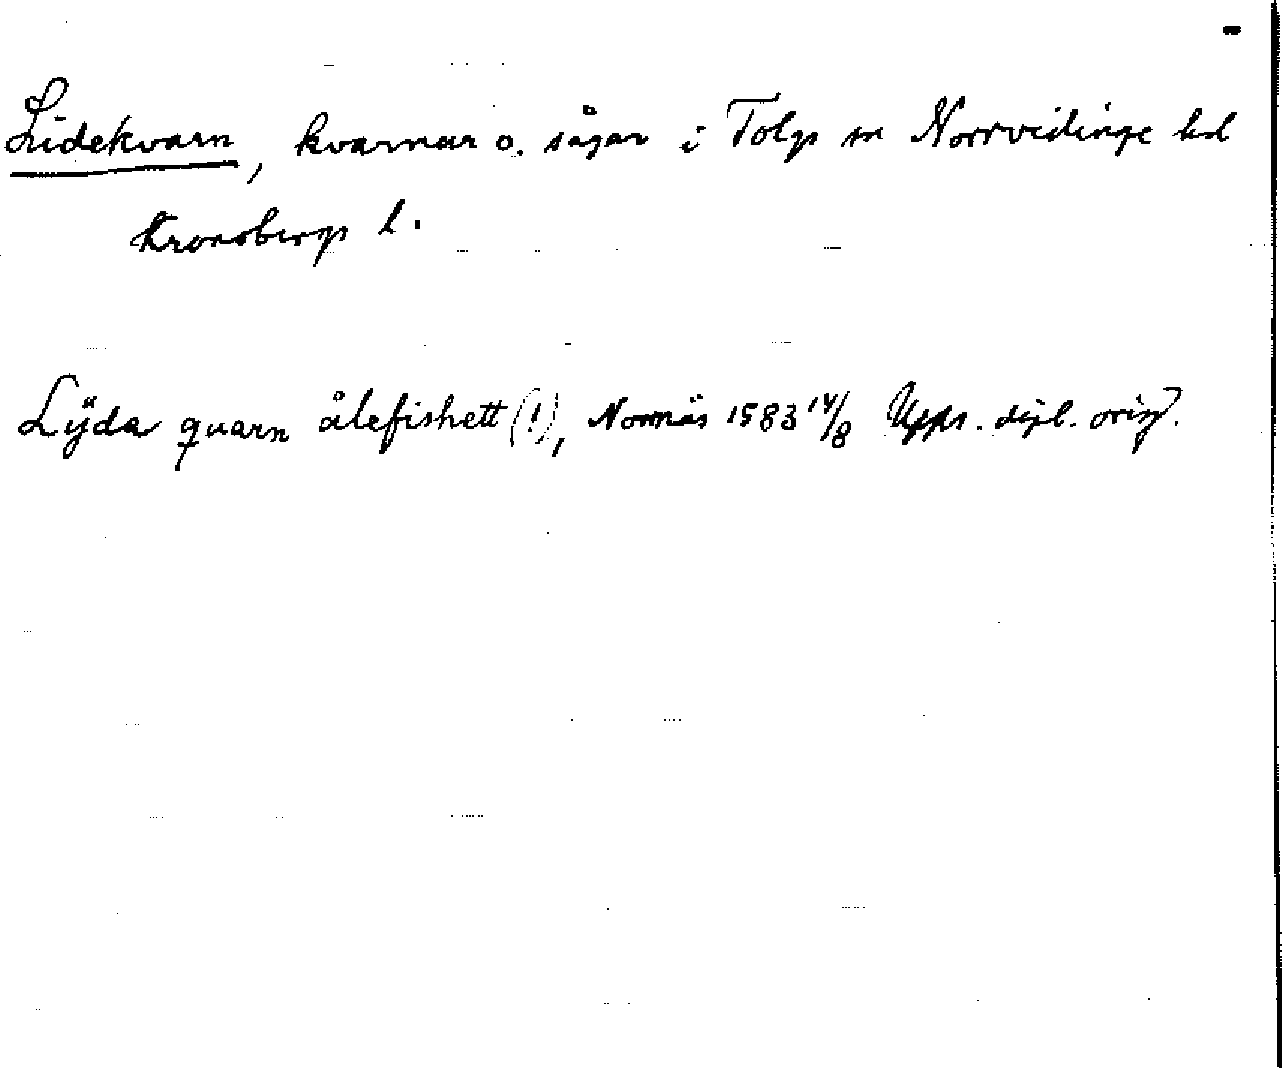 Lidekvarn, kvarnar o. sågar i Tolgs sn Norrvidinge hd
Kronobergs l.
Lÿda quarn ålefiskett (!), Normäs 1583 14/8 Upps. dipl. orig.